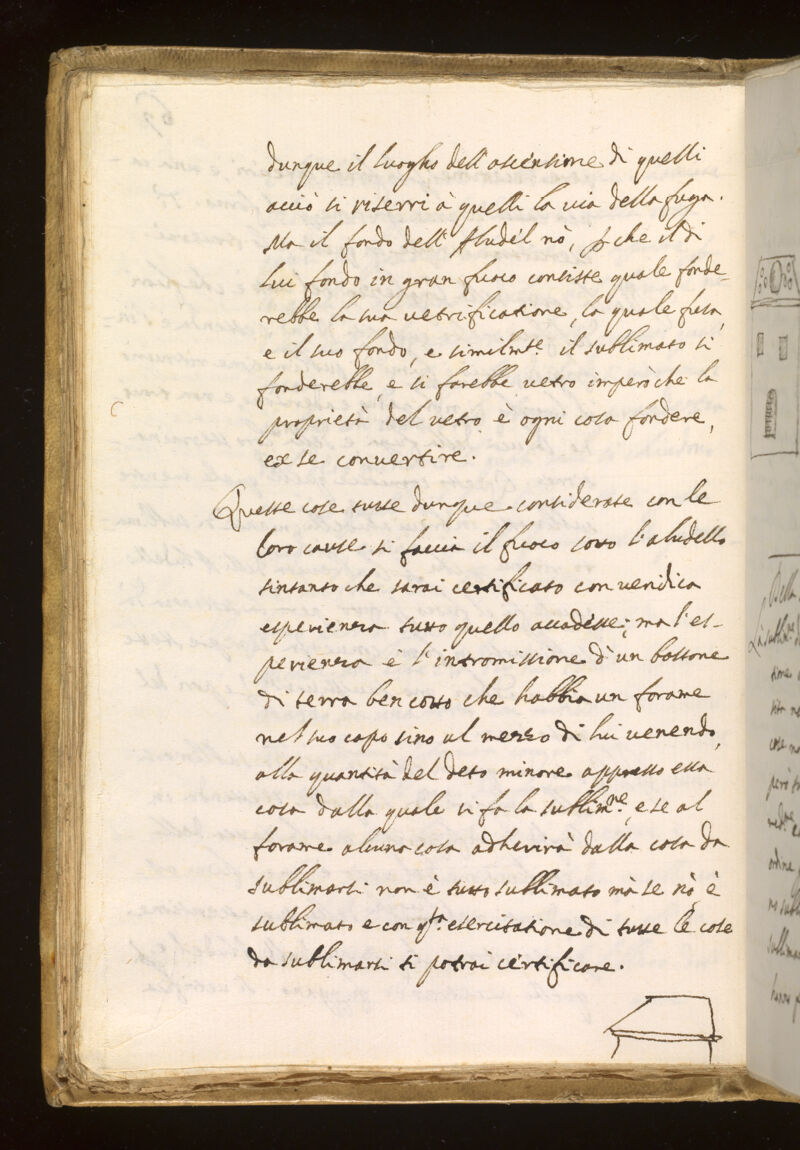 dunque il luogho dell'ascensione di quelli
acciò si riserri à quelli la via della fuga.
Ma il fondo dell'Aludél nò, p che il di
lui fondo in gran fuoco consiste quale fonde-
rebbe la sua vetrificatione, la quale fusa,
e il suo fondo, e similmte. il sublimato si
fonderebbe, e si farebbe vetro imperòche la
proprietà del vetro è ogni cosa fondere,
ex se convertire.
Queste cose tutte dunque considerate con le
loro cause si faccia il fuoco sotto l'aludello
sintanto che sarai certificato con veridica
esperienza tutto quello accadesse; ma l'es-
perienza è l'intromissione d'un bastone
di terra ben cotto che habbia un forame
nel suo capo sino al mezzo di lui venendo,
alla quantità del deto minore appresso essa
cosa dalla quale si fa la sublimne., e se al
forame alcuna cosa adherirà dalla cosa da
sublimarsi non è tutto sublimato mà se nò, è
sublimato e con qsta. esercitatione di tutte le cose
da sublimarsi ti potrai certificare.
Della